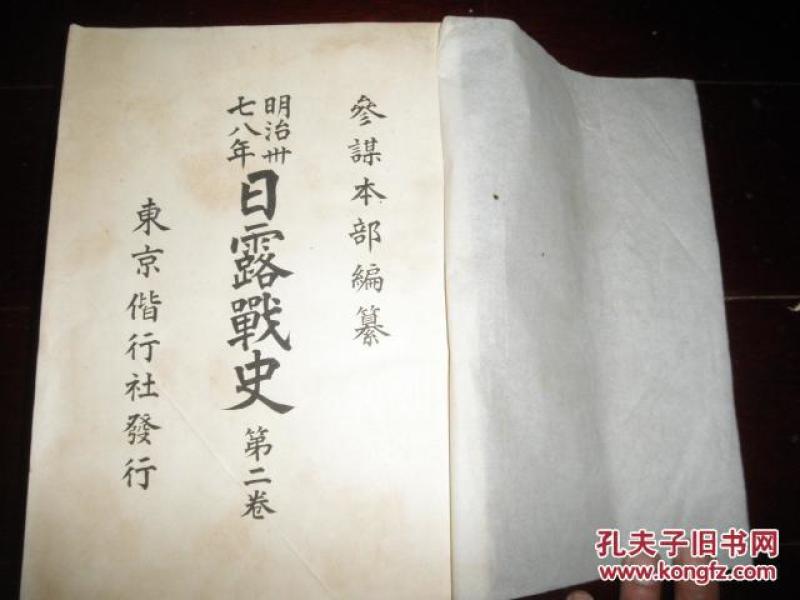 參謀本部編纂
明治卅七八年
日露戰史 第二卷
東京偕行社發行
孔夫子旧书网
www.kongfz.com